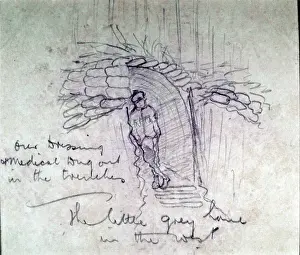 Our Dressing
& Medical Dug out
in the trenches
The little grey home
in the west